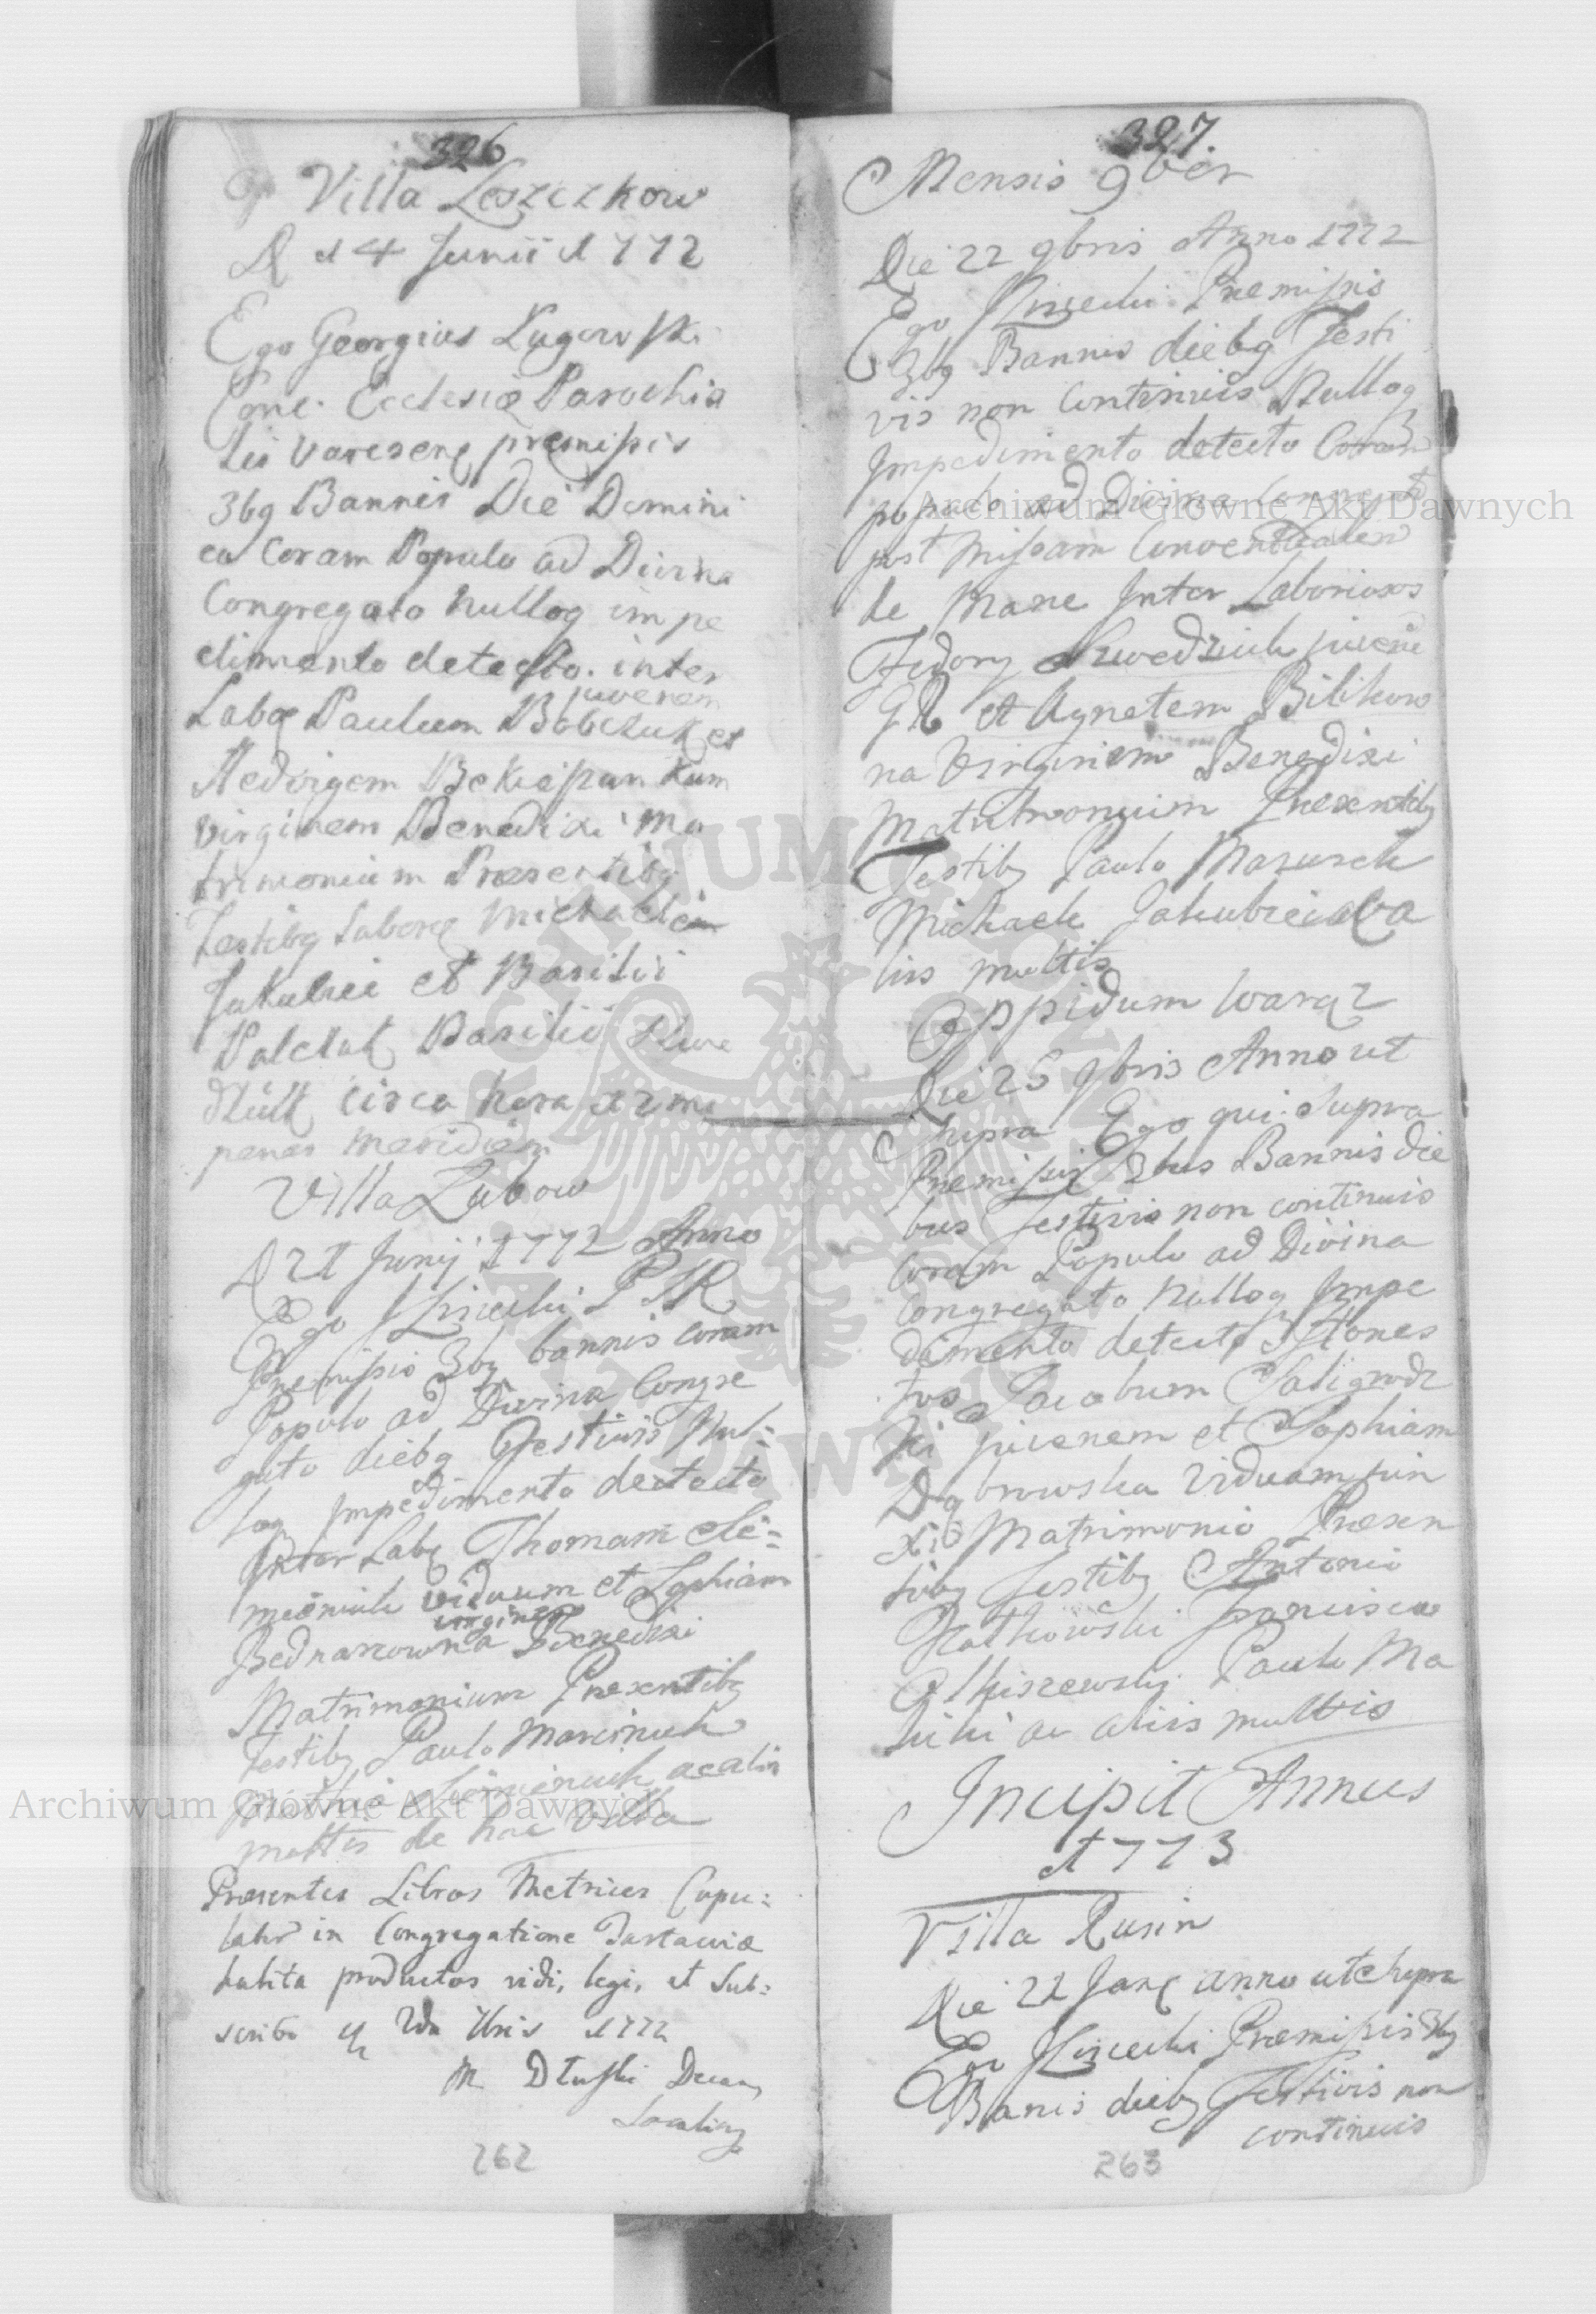 326
Villa Leszczkow
D 14 Junii 1772
Ego Georgius Lugowski
Conc: Ecclesiæ Parochia
lis Varesenę præmissis
3bg Bannis Die Domini
ca Coram Populo ad Divina
Congregato nullog impe
dimento detecto. inter
juvenem
Labo Paulum Babczuk et
Hedvigem
virginem Benedixi Ma
trimonium Præsentibg
Testibg Laborę Michaele
Jakubei et Basilii
Palczuk Basilii Szwe
dziuk circa hora 12ma
penes meridiem
Villa Zubow
D 21 Junij 1772 Anno
Ego
Præmissis 3bg bannis coram
Populo ad Divina Congre
gato diebg Festivis Nul=
log Impedimento dectecto
Inter Labę Thomam Sie=
mieniuk viduum et Sophiam
virginem
Bednarzowna Benedixi
Matrimonium Præsentibg
Testibg Paulo Marciniuk
ac aliis
multis de hac villa
Præsentes Libros Metrices Copu=
lator in Congregatione Tartaviæ
habita productos vidi, legi, et Sub=
scribo
M Dłuski Decan
Localis
262
327.
Mensis 9ber
Die 22 9bris Anno 1772
Ego Præmissis
3bg Bannis diebg Festi
vis non Continuis Nullog
Impedimento detecto Coram
populo ad Divina Congregato
post Missam Conventualem
de Mane Inter Laboriosos
Fedory Szwedziuk juvene
GR et Agnetem Bilikow
na Virginem Benedixi
Matrimonium Præsentibg
Testibg Paulo Mazurek
Michaele Jakubiei ac a
liis multis
Oppidum Waręz
Die 25 9bris Anno ut
Supra Ego qui Supra
Præmissis 3bus Bannis die
bus Festivis non continuis
Coram Populo ad Divina
Congregato Nullog Impe
dimento detecto Hones
tos Jacobum Saligrodz
ki juvenem et Sophiam
Dąbrowska Viduam jun
xi Matrimonio Præsen
tibg Testibg Antonio
Ratkowski Francisco
Olkiszewski Paulo Ma
licki ac aliis multis
Incipit Annus
1773
Villa Rusin
Die 22 Janę anno ut Supra
Ego Præmissis 3bg
Banis diebg Festivis non
continuis
263
Archiwum Główne Akt Dawnych
Archiwum Główne Akt Dawnych
ARCHIWUM GŁÓWNE AKT DAWNYCH